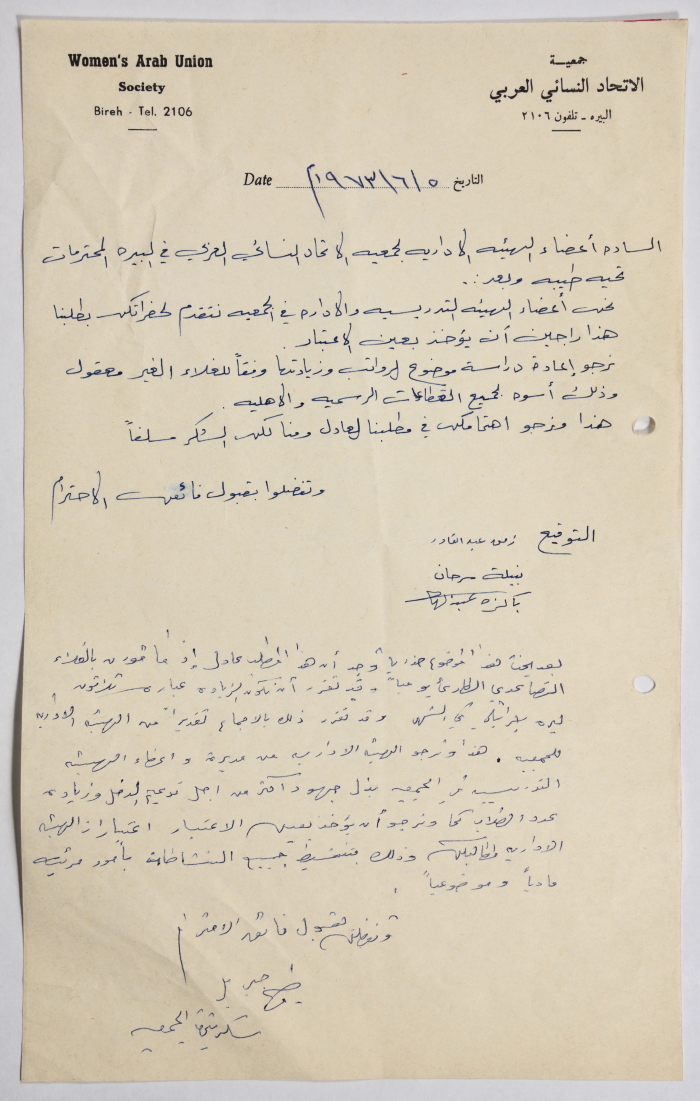 Women's Arab Union
Society
Bireh - Tel. 2106
جمعيـــة
الاتحاد النسائي العربي
البيره ـ تلفون ٢١٠٦
Date ١٩٧٣/٦/٥م التاريخ
الساده أعضاء الهيئه الاداريه لجمعيه الاتحاد النسائي العربي في البيره المحترمات
تحيه طيبه وبعد :
نحن أعضاء الهيئه التدريسيه والاداره في الجمعيه نتقدم لحضراتكن بطلبنا
هذا راجين أن يؤخذ بعين الاعتبار .
نرجو إعادة دراسة موضوع الرواتب وزيادتها وفقاً للغلاء الغير معقول
وذلك أسوه لجميع القطاعات الرسميه والاهليه .
هذا ونرجو اهتمامكن في مطلبنا العادل ومنا لكن الشكر سلفاً
وتفضلوا بقبول فائق الاحترام
التوقيع عبد القادر
نبيلة سرحان
باكزه
بعد بحث هذا الموضوع وجد أن هذا المطلب عادل إذا ما قورن بالغلاء
التصاعدي الطارئ يومياً وقد تقرر أن تكون الزياده عباره ثلاثون
ليره إسرائيلية في الشهر وقد تقرر ذلك بالاجماع تقديراً من الهيئه الاداريه
للجمعيه . هذا ونرجو الهيئه الاداريه من مديرة واعضاء الهيئه
التدريسيه في الجمعيه بذل جهود اكثر من اجل الدخل وزيادة
عدد الطلاب كما ونرجو أن يؤخذ بعين الاعتبار اعتبارات الهيئه
الاداريه وذلك بتنشيط جميع النشاطات بأمور مرئيه
مادياً وموضوعياً .
وتفضلن بقبول فائق الاحترام
جبريل
سكرتيرة الجمعيه